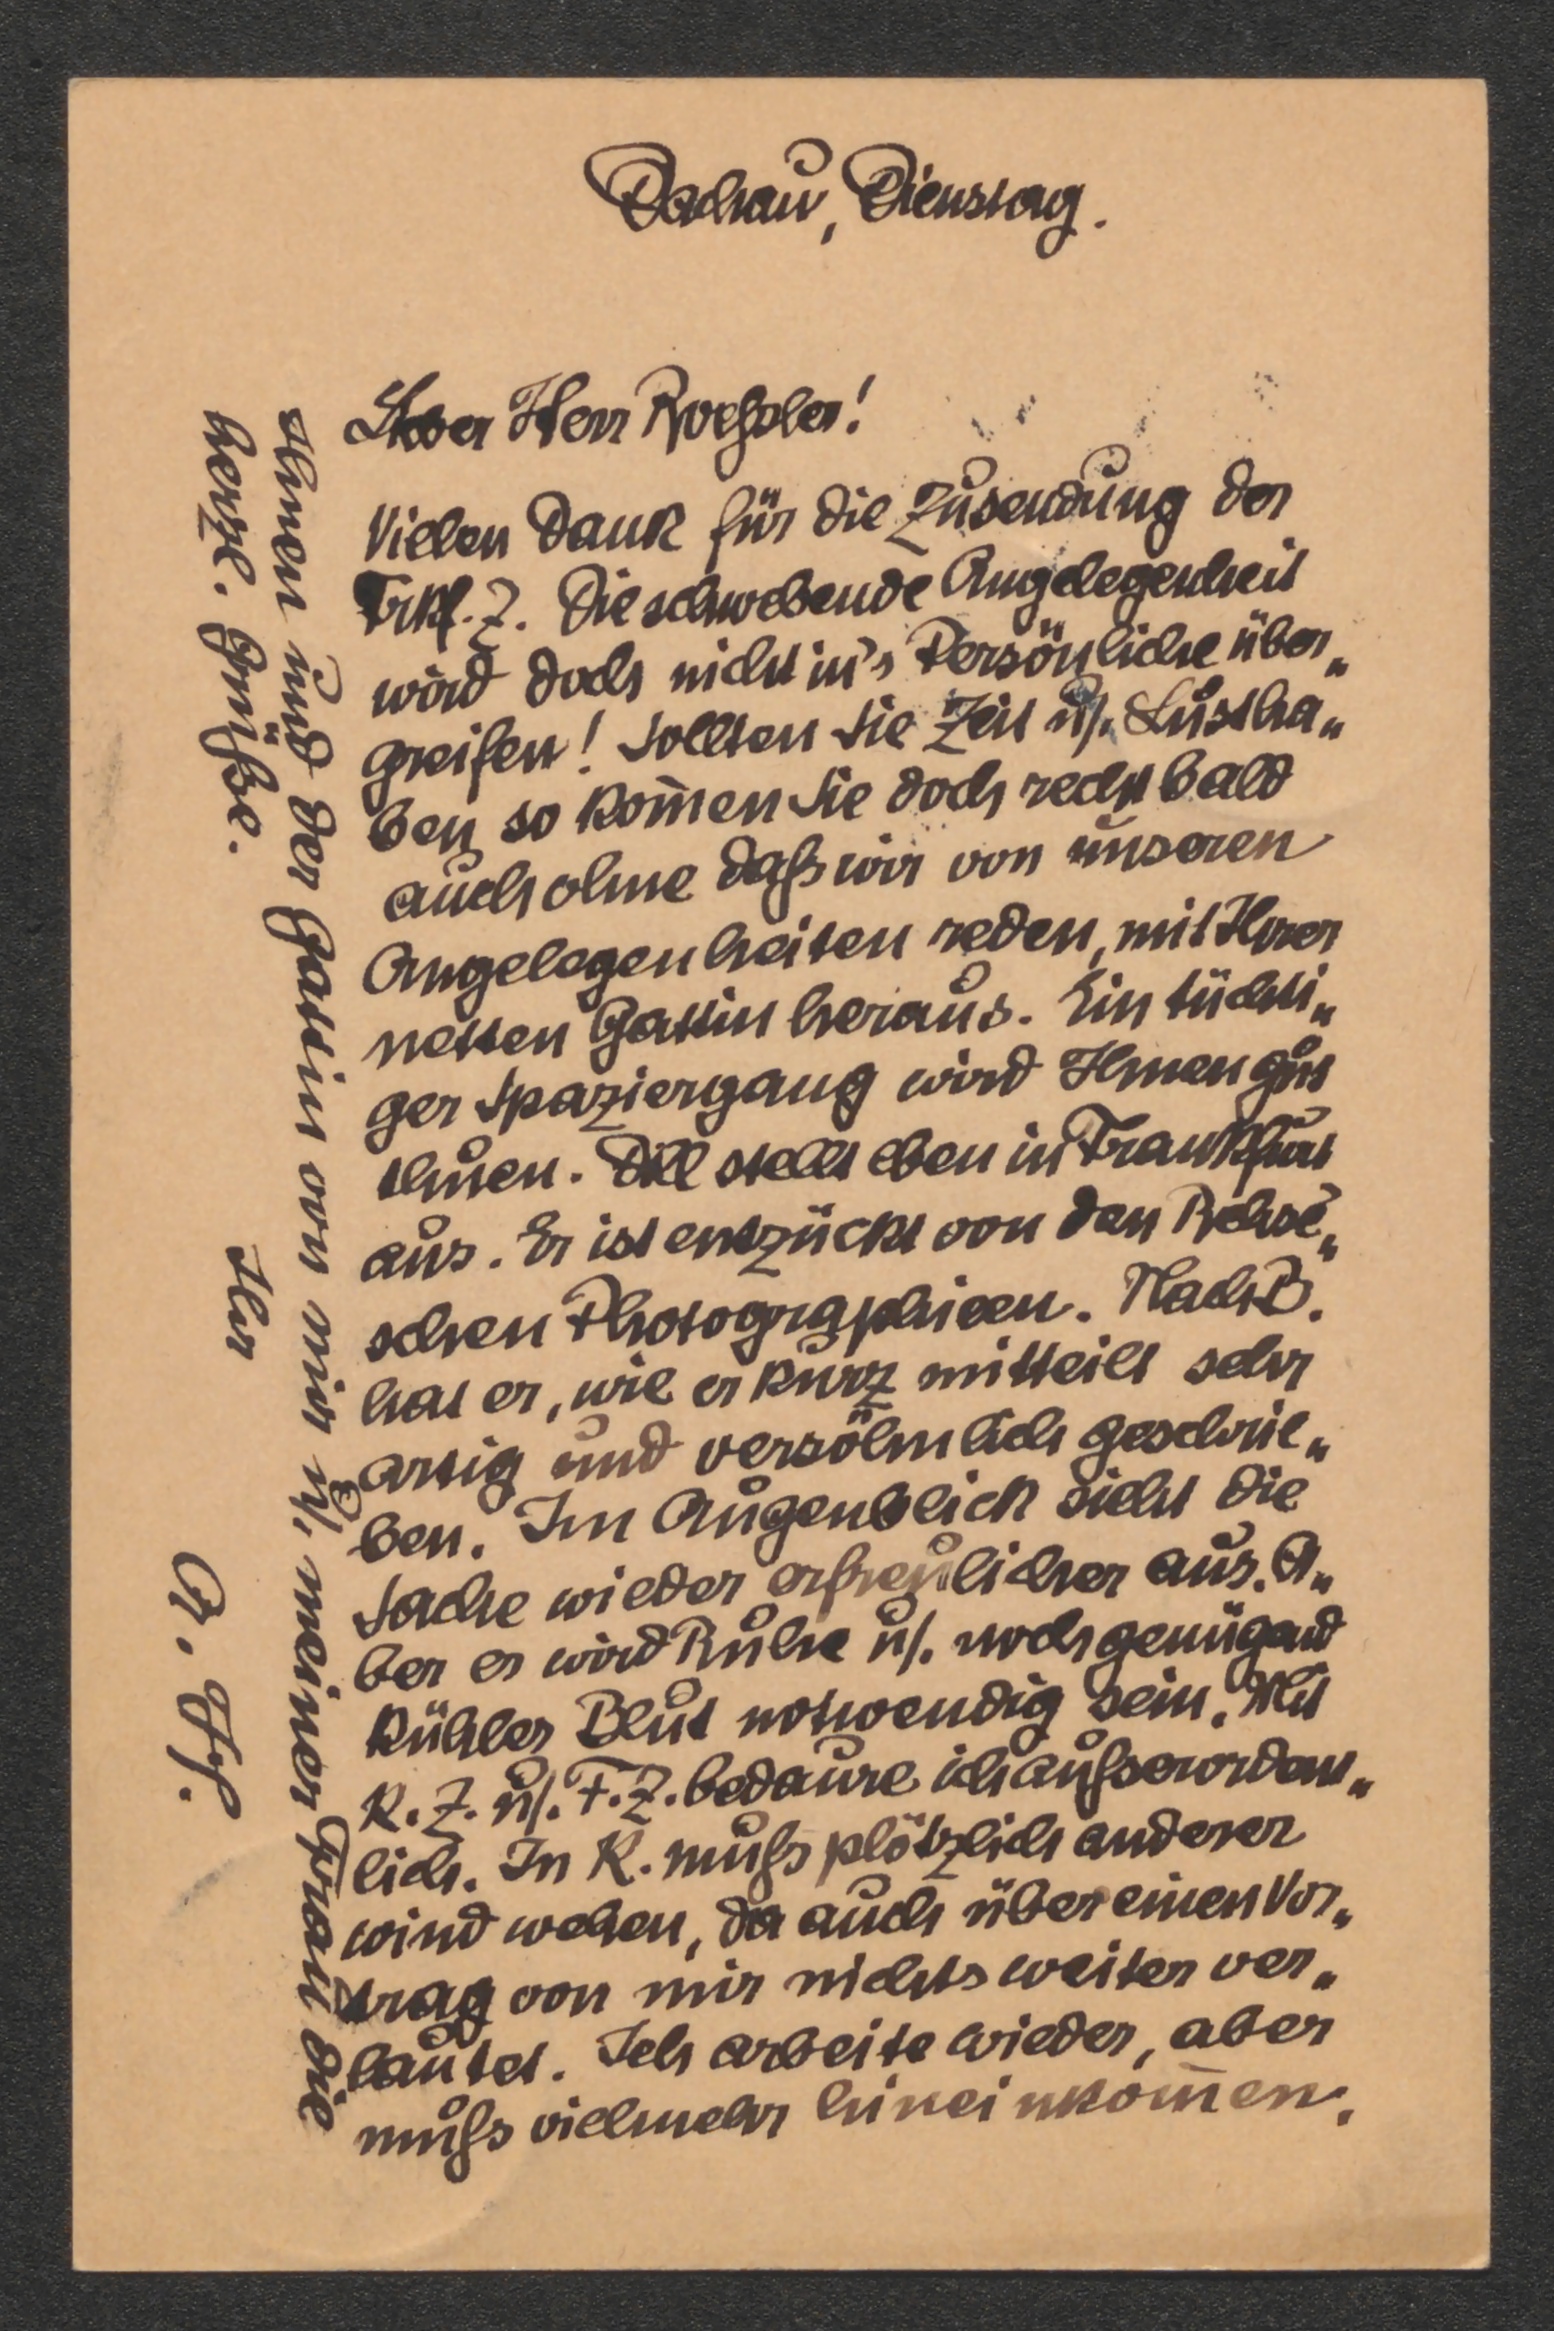 Dachau, Dienstag.
Lieber Herr Roeßler!
Vielen Dank für die Zusendung der
Frkf. Z. Die schwebende Angelegenheit
wird doch nicht in's Persönliche über„
greifen! Sollten Sie Zeit u/. Lust ha„
ben, so kom̄en Sie doch recht bald
auch ohne daß wir von unseren
Angelegenheiten reden, mit Ihrer
netten Gattin heraus. Ein tüchti„
ger Spaziergang wird Ihnen gut
thuen. Dill stellt eben in Frankfurt
aus. Er ist entzückt von den
schen Photographieen. Nach B.
hat er, wie er kurz mitteilt sehr
artig und versöhnlich geschrie„
ben. Im Augenblick sieht die
Sache wieder erfreulicher aus. A„
ber es wird Ruhe u/. noch genügend
kühles Blut notwendig sein. Mit
K. Z. u/. F. Z. bedaure ich außerordent„
lich. In K. muß plötzlich anderer
wind wehen, da auch über einen Vor„
trag von mir nichts weiter ver„
lautet. Ich arbeite wieder, aber
muß vielmehr hineinkom̄en.
Ihnen und der Gattin von mir u/. meiner Frau die
herzl. Grüße.
Ihr
A. Hf.